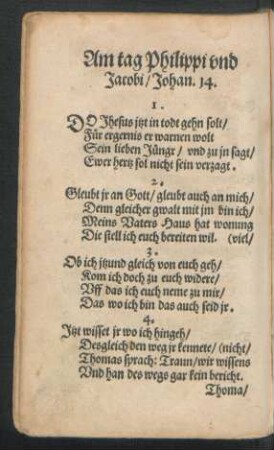 Am tag Philippi vnd
Jacobi/ Johan. 14.
1.
DO Jhesus jtzt in todt gehn solt/
Für ergernis er warnen wolt
Sein lieben Jüngr/ vnd zu jn sagt/
Ewer hertz sol nicht sein verzagt.
2.
Gleubt jr an Gott/ gleubt auch an mich/
Denn gleicher gwalt mit jm bin ich/
Meins Vaters Haus hat wonung
Die stell ich euch bereiten wil. (viel/
3.
Ob ich jtzund gleich von euch geh/
Kom ich doch zu euch widere/
Vff das ich euch neme zu mir/
Das wo ich bin das auch seid jr.
4.
Jtzt wisset jr wo ich hingeh/
Desgleich den weg jr kennete/ (nicht/
Thomas sprach: Traun/ wir wissens
Vnd han des wegs gar kein bericht.
Thoma/